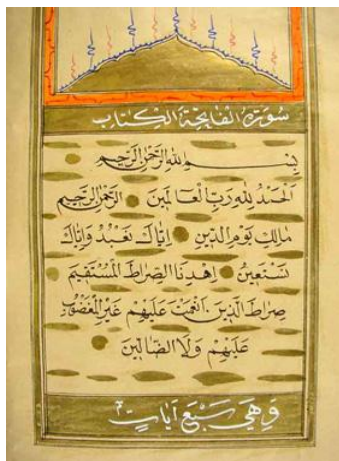 سورة الفاتحة الكتاب
بسم الله الرحمن الرحيم
الحمد لله رب العالمين الرحمن الرحيم
مالك يوم الدين اياك نعبد واياك
نستعين اهدنا الصراط المستقيم
صراط الذين انعمت عليهم غير المغضوب
عليهم ولا الضالين
وهي سبع ايات